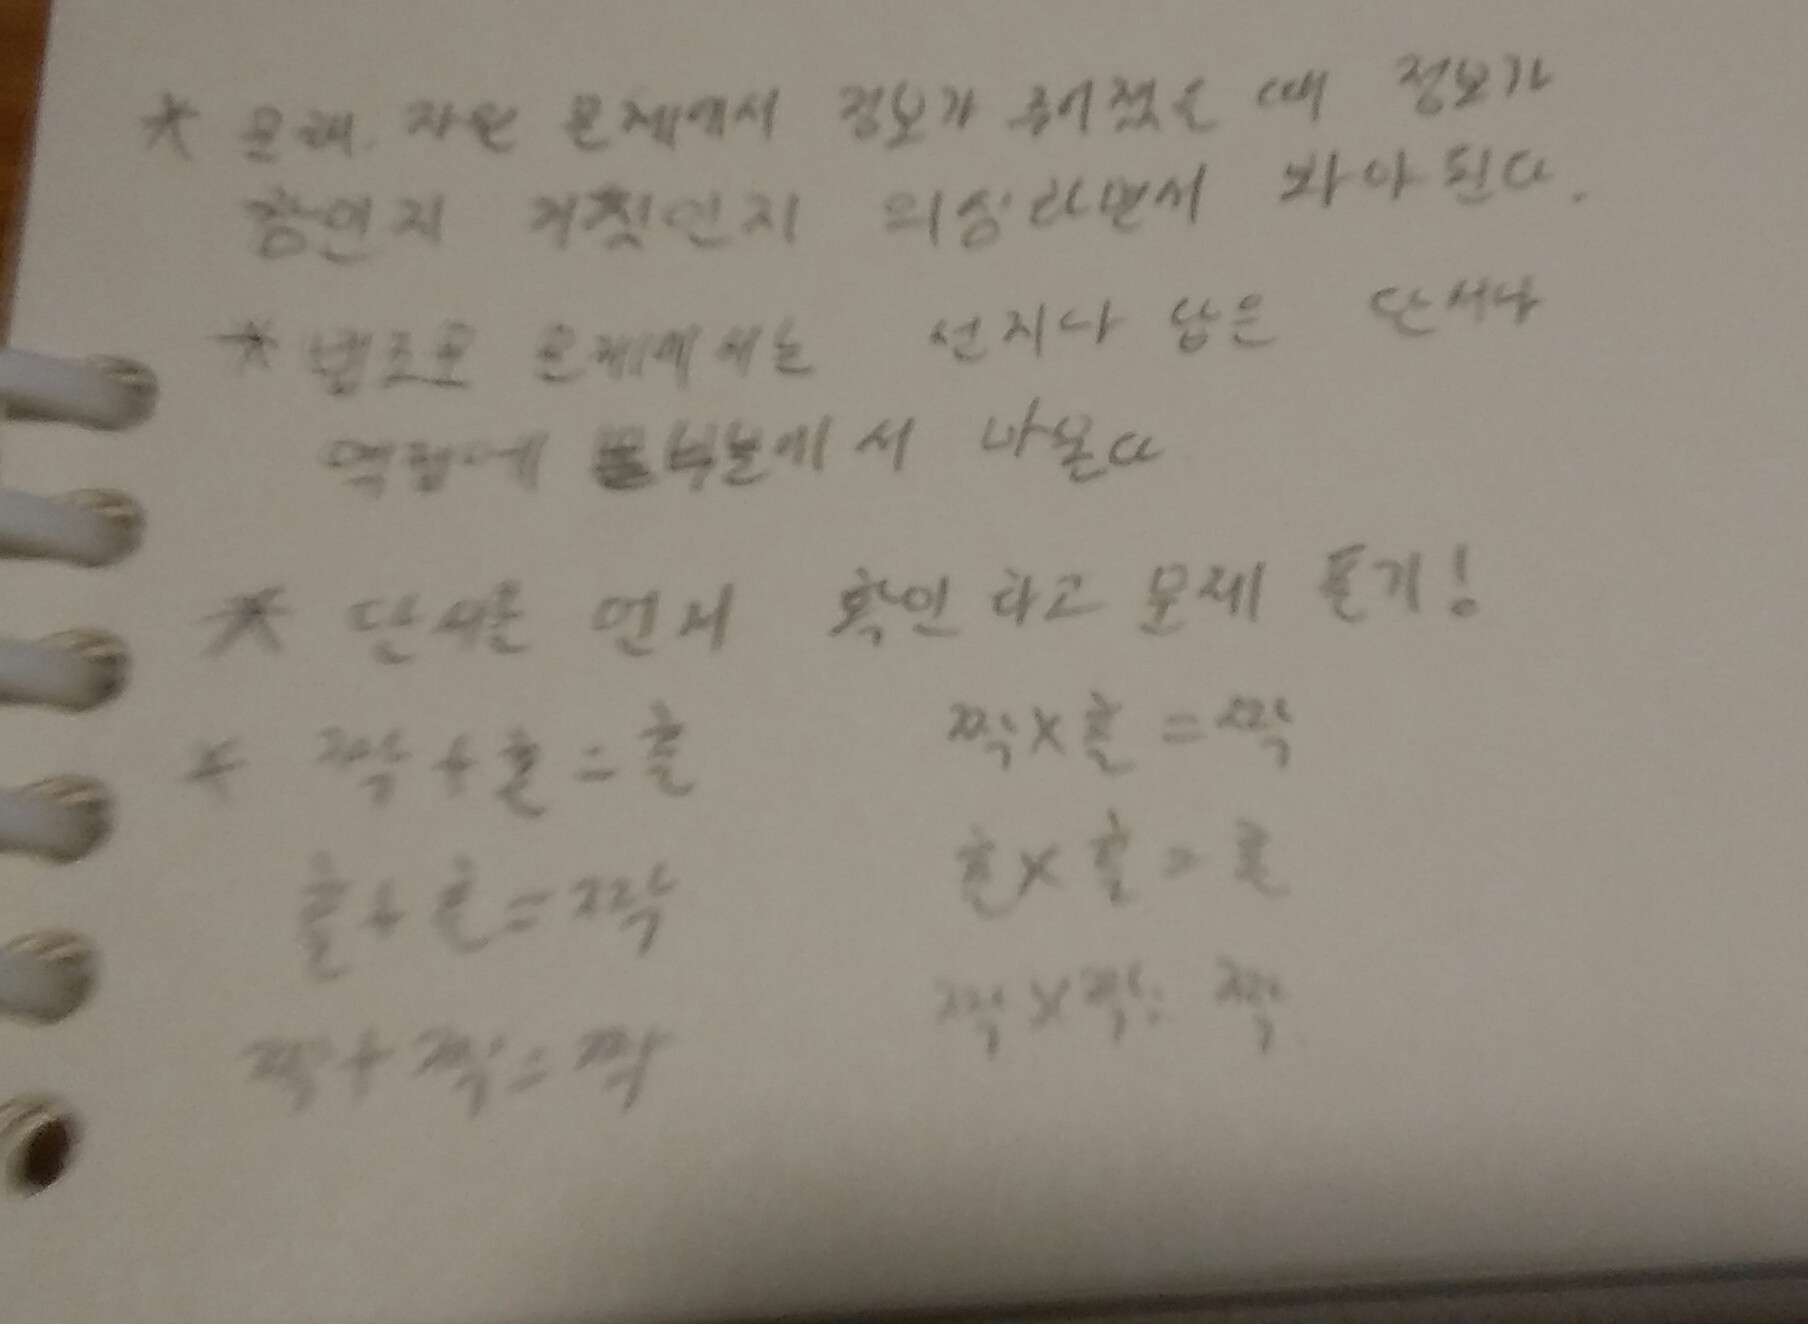 * 문제. 자원 문제에서 정보가 주어졌을 때 정보가
참인지 거짓인지 의심하면서 봐야 된다.
* 법조문 문제에서는 선지나 답은 단서나
부분에서 나온다
* 단서를 먼저 확인하고 문제 풀기!
* 짝+홀=홀 짝×홀=짝
홀+홀=짝 홀×홀=홀
짝+짝=짝 짝×짝= 짝